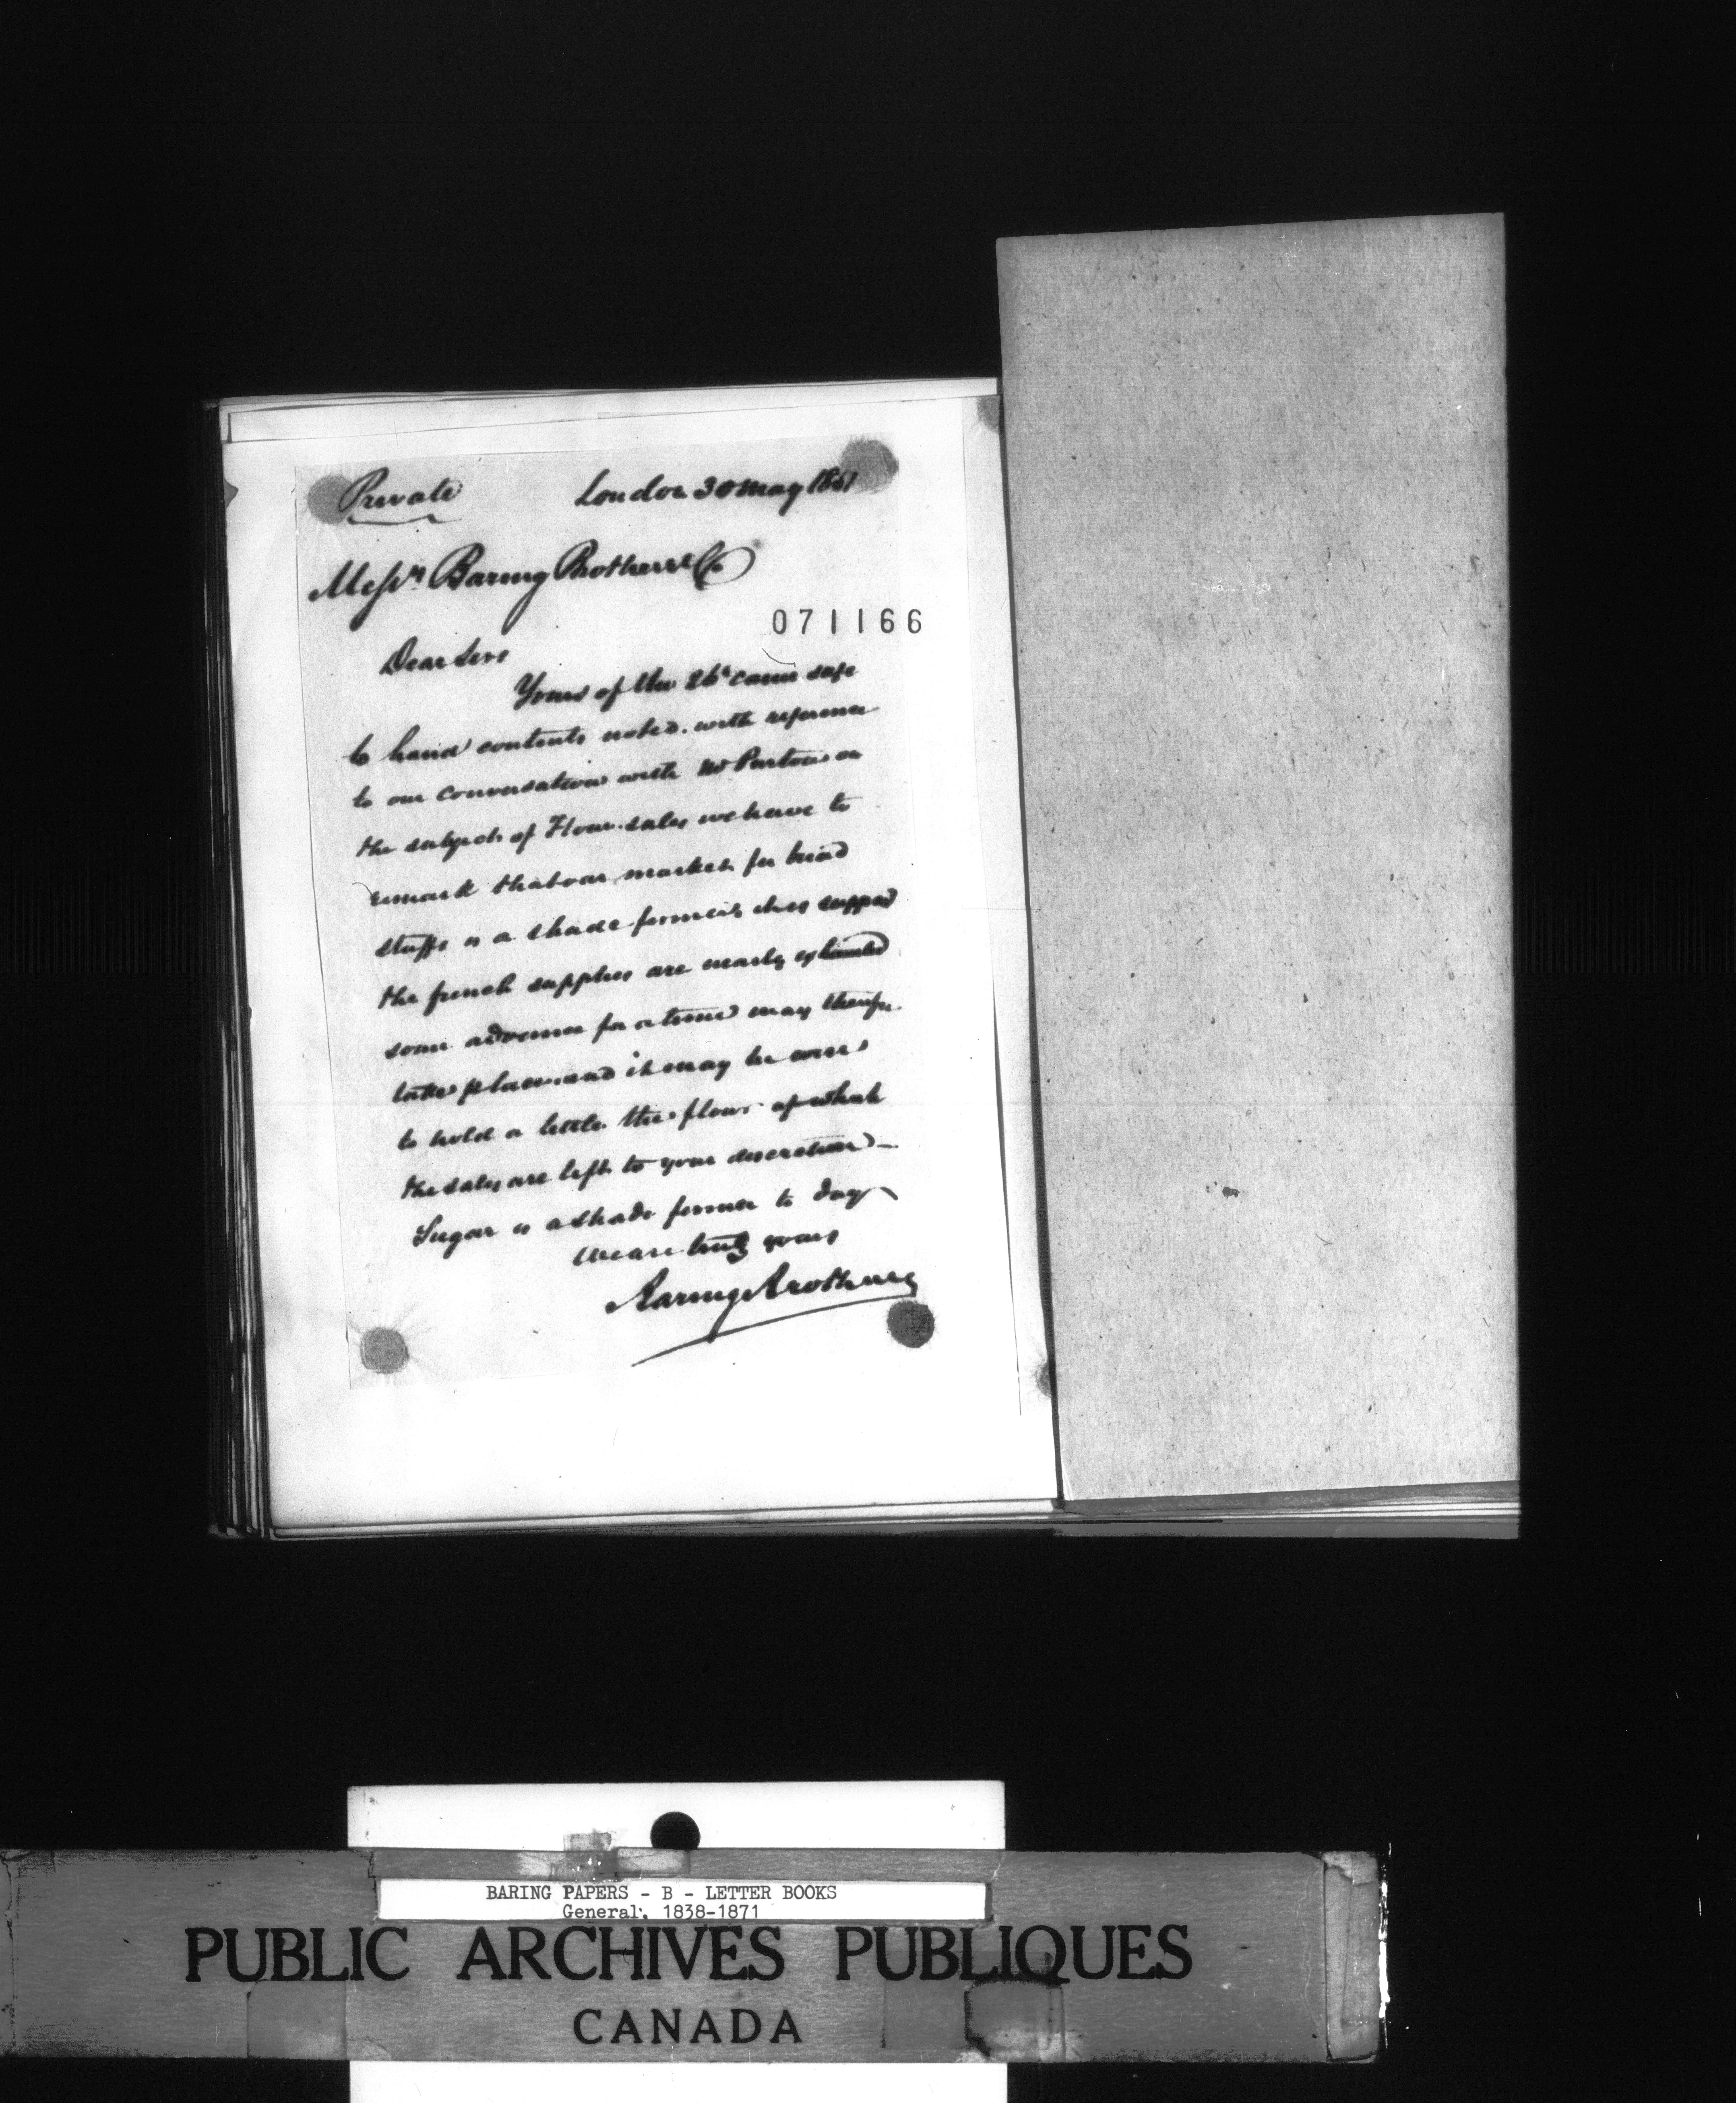 Private London 30 May 1851
Messrs Baring Brothers & Co
071166
Dear Sirs
Yours of the 26th came safe
to hand contents noted. with reference
to our conversation with Mr on
the subject of Flour sales we have to
remark that our market for bread
stuffs is a shade firmer it is supposed
the french supplies are nearly exhausted
some advance for a time may therefore
take place and it may be well
to hold a little the flour of which
the sales are left to your discretion —
Sugar is a shade firmer to day
We are truly yours
Baring Brothers
BARING PAPERS - B - LETTER BOOKS
General, 1838-1871
PUBLIC ARCHIVES PUBLIQUES
CANADA